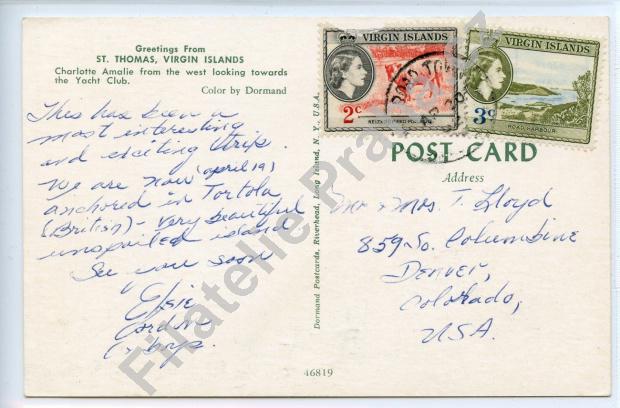 Greetings From
ST. THOMAS, VIRGIN ISLANDS
Charlotte Amalie from the west looking towards
the Yacht Club.
Color by Dormand
This has been a
most interesting
and exciting trip.
We are now (april 19)
anchored in Tortola
(British) - very beautiful
unspoiled island
See you soon
Elsie
Gordon
& boys.
Dormand Postcards, Riverhead, Long Island, N. Y., U.S.A.
46819
VIRGIN ISLANDS
2c
VIRGIN ISLANDS
3c
ROAD HARBOUR
ROAD TOWN
POST CARD
Address
Mr & Mrs T. Lloyd
859 So. Columbine
Denver,
Colorado,
USA.
Filatelie Pra